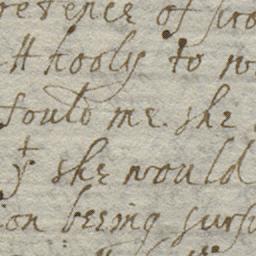 retence of
hooly to
sould me. she
yt she would
ion beeing